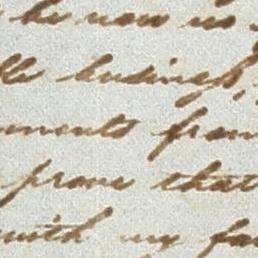 he now no
business,
ments from
prove that
with my fa